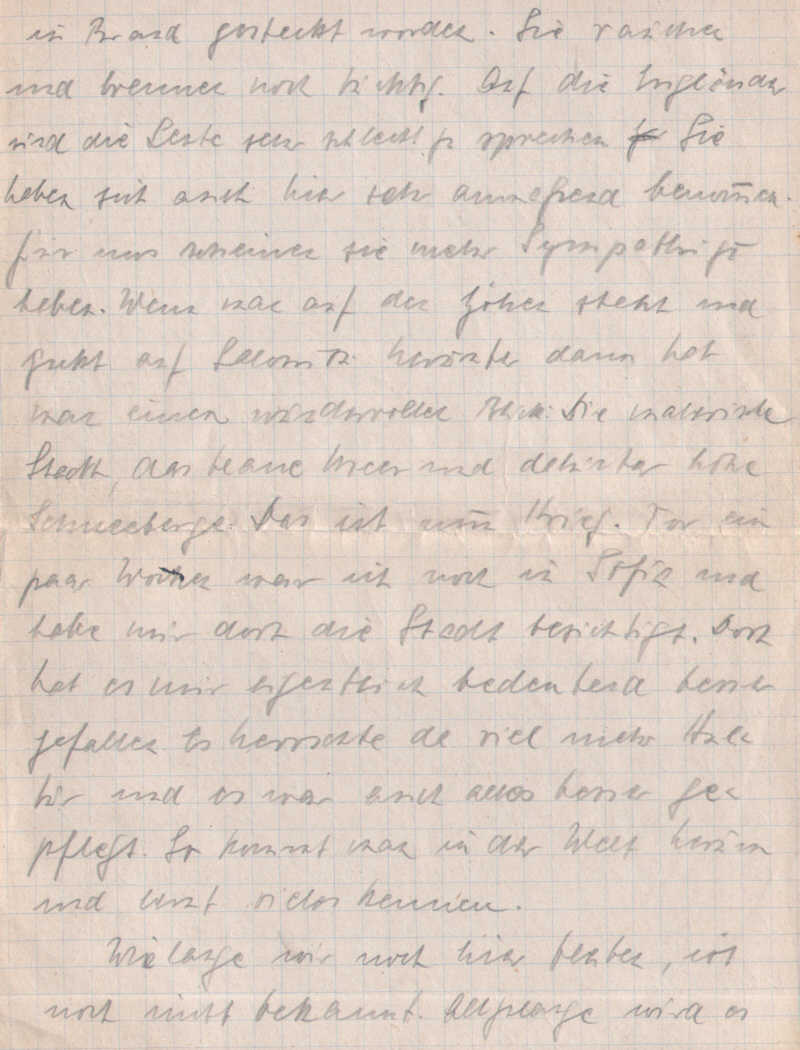 in Brand gesteckt worden. Sie rauchen
und brennen noch tüchtig. Auf die Engländer
sind die Leute sehr schlecht zu sprechen Sie
haben sich auch hier sehr benommen.
Für uns scheinen sie mehr Sympathie zu
haben. Wenn man auf den Höhen steht und
guckt auf Saloniki herunter dann hat
man einen wundervollen Blick: Die malerische
Stadt, das blaue Meer und dahinter hohe
Schneeberge. Das ist nun Krieg. Vor ein
paar Wochen war ich noch in Sofia und
habe mir dort die Stadt besichtigt. Dort
hat es mir eigentlich bedeutend besser
gefallen Es herrschte da viel mehr Kul
tur und es war auch alles besser ge
pflegt. So kommt man in der Welt herum
und lernt vieles kennen.
Wie lange wir noch hier bleiben, ist
noch nicht bekannt. Allzulange wird es